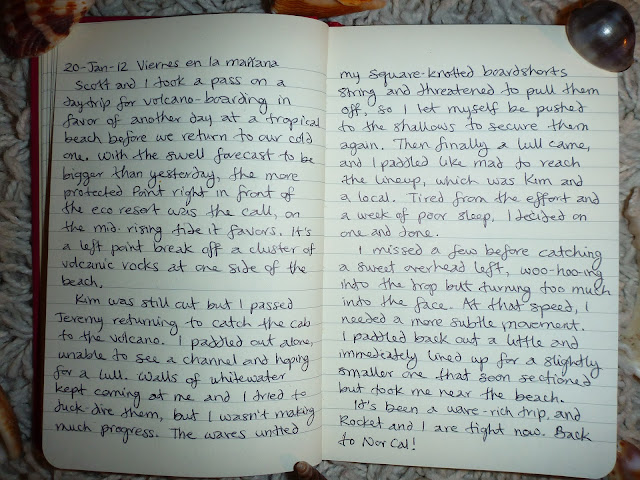 20-Jan-12 Viernes en la mañana
Scott and I took a pass on a
daytrip for volcano-boarding in
favor of another day at a tropical
beach before we return to our cold
one. With the swell forecast to be
bigger than yesterday, the more
protected Point right in front of
the eco resort was the call, on
the mid-rising tide it favors. It's
a left point break off a cluster of
volcanic rocks at one side of the
beach.
Kim was still out but I passed
Jeremy returning to catch the cab
to the volcano. I paddled out alone,
unable to see a channel and hoping
for a lull. Walls of whitewater
kept coming at me and I tried to
duck-dive them, but I wasn't making
much progress. The waves untied
my square-knotted boardshorts
string and threatened to pull them
off, so I let myself be pushed
to the shallows to secure them
again. Then finally a lull came,
and I paddled like mad to reach
the lineup, which was Kim and
a local. Tired from the effort and
a week of poor sleep, I decided on
one and done.
I missed a few before catching
a sweet overhead left, woo-hoo-ing
into the drop but turning too much
into the face. At that speed, I
needed a more subtle movement.
I paddled back out a little and
immediately lined up for a slightly
smaller one that soon sectioned
but took me near the beach.
It's been a wave-rich trip, and
Rocket and I are tight now. Back
to NorCal!